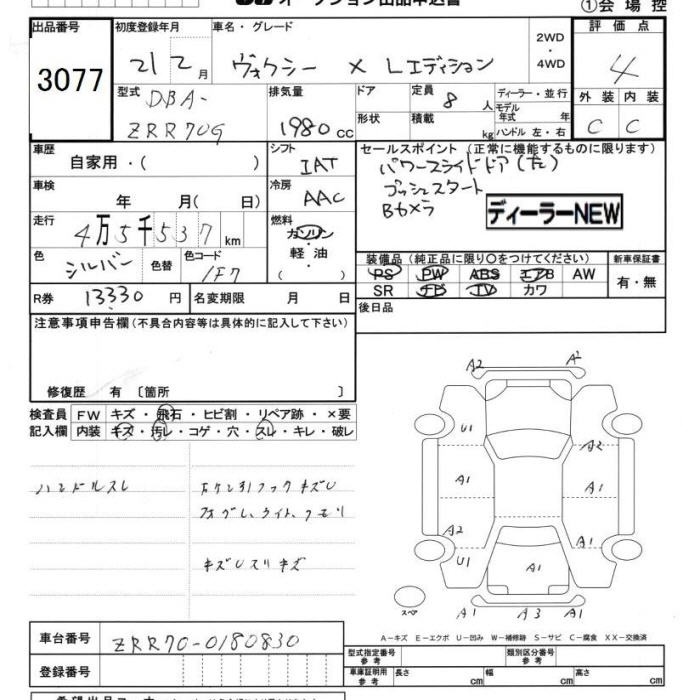 ①会場控
出品番号 初度登録年月 車名・グレード 評価点
3077 21 2月 ヴォクシー X Lエディション 2WD・4WD 4
型式 DBA- 排気量 ドア 定員 8人 ディーラー・並行 外装 内装
ZRR70G 1980cc 形状 積載 kg モデル年式 年 ハンドル 左・右 C C
車歴 シフト セールスポイント (正常に機能するものに限ります)
自家用・( ) IAT パワースライドドア(左)
車検 冷房 プッシュスタート
年 月( 日) AAC Bカメラ
走行 燃料 ディーラーNEW
4万5千537km ガソリン・軽油・( )
色 シルバー 色替 色コード 1F7 装備品 (純正品に限り〇をつけてください) 新車保証書
PS PW ABS エアB AW 有・無
R券 13330円 名変期限 月 日 SR ナビ TV カワ
注意事項申告欄(不具合内容等は具体的に記入して下さい) 後日品
修復歴 有 〔箇所 〕
検査員 FW キズ・飛石・ヒビ割・リペア跡・×要
記入欄 内装 キズ・汚レ・コゲ・穴・スレ・キレ・破レ
ハンドルスレ
キズUスリキズ
A2 A2
U1 A2
A1 A1
A2
U1 A1 A1
スペア A1 A3 A1
A-キズ E-エクボ U-凹み W-補修跡 S-サビ C-腐食 XX-交換済
車台番号 ZRR70-0180830 型式指定番号 参考 類別区分番号 参考
登録番号 車庫証明用 参考 長さ cm 幅 cm 高さ cm